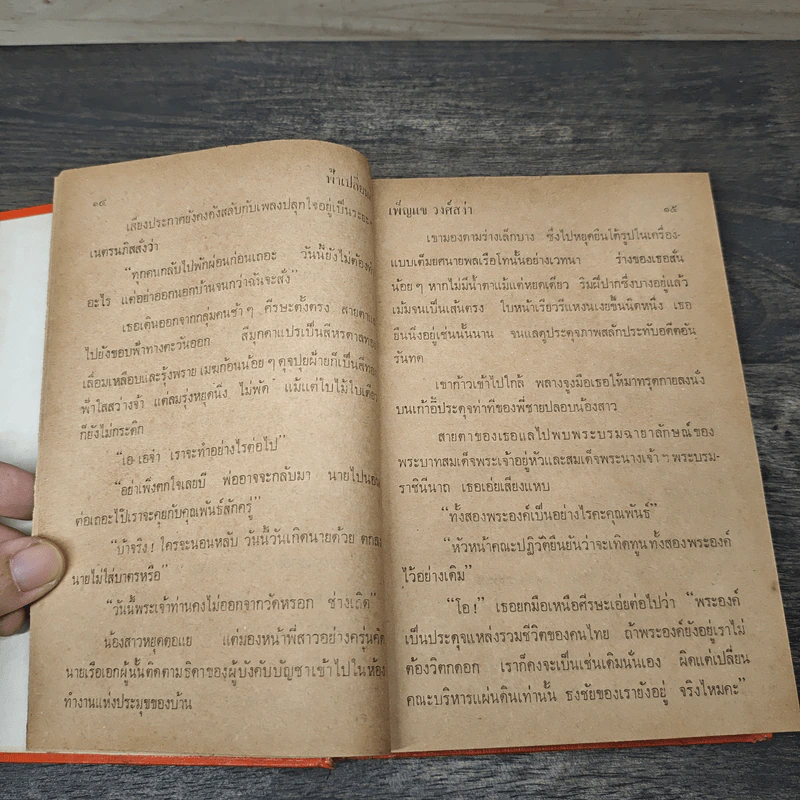 ๑๔
ฟ้าเปลี่ยน
เสียงประกาศยังคงดังสลับกับเพลงปลุกใจอยู่เป็นระยะ
เนตรนภิสสั่งว่า
“ทุกคนกลับไปพักผ่อนก่อนเถอะ วันนี้ยังไม่ต้องทำ
อะไร แต่อย่าออกนอกบ้านจนกว่าฉันจะสั่ง”
เธอเดินออกจากกลุ่มคนช้า ๆ ศีรษะตั้งตรง สายตาแล
ไปยังขอบฟ้าทางตะวันออก สีมุกดาแปรเป็นสีหรดาลทอง
เลื่อมเหลือบและรุ้งพราย เมฆก้อนน้อย ๆ ดุจปุยฝ้ายก็เป็นสีทอง
ฟ้าใสสว่างจ้า แต่ลมรุ่งหยุดนิ่ง ไม่พัด แม้แต่ใบไม้ใบเดียว
ก็ยังไม่กระดิก
“เอ-เอจ๋า เราจะทำอย่างไรต่อไป”
“อย่าเพิ่งตกใจเลยบี พ่ออาจจะกลับมา นายไปนอน
ต่อเถอะไป๊เราจะคุยกับคุณพันธ์สักครู่”
“บ้าจริง! ใครจะนอนหลับ วันนี้วันเกิดนายด้วย ตกลง
นายไม่ใส่บาตรหรือ”
“วันนี้พระเจ้าท่านคงไม่ออกจากวัดหรอก ช่างเถิด”
น้องสาวหยุดตอแย แต่มองหน้าพี่สาวอย่างครุ่นคิด
นายเรือเอกผู้นั้นติดตามธิดาของผู้บังคับบัญชาเข้าไปในห้อง
ทำงานแห่งประมุขของบ้าน
เพ็ญแข วงศ์สง่า
๑๕
เขามองตามร่างเล็กบาง ซึ่งไปหยุดยืนใต้รูปในเครื่อง-
แบบเต็มยศนายพลเรือโทนั้นอย่างเวทนา ร่างของเธอสั่น
น้อย ๆ หากไม่มีน้ำตาแม้แต่หยดเดียว ริมฝีปากซึ่งบางอยู่แล้ว
เม้มจนเป็นเส้นตรง ใบหน้าเรียวรีแหงนเงยขึ้นนิดหนึ่ง เธอ
ยืนนิ่งอยู่เช่นนั้นนาน จนแลดูประดุจภาพสลักประทับอดีตอัน
รันทด
เขาก้าวเข้าไปใกล้ พลางจูงมือเธอให้มาทรุดกายลงนั่ง
บนเก้าอี้ประดุจท่าทีของพี่ชายปลอบน้องสาว
สายตาของเธอแลไปพบพระบรมฉายาลักษณ์ของ
พระบาทสมเด็จพระเจ้าอยู่หัวและสมเด็จพระนางเจ้า ฯ พระบรม-
ราชินีนาถ เธอเอ่ยเสียงแหบ
“ทั้งสองพระองค์เป็นอย่างไรคะคุณพันธ์”
“หัวหน้าคณะปฏิวัติยืนยันว่าจะเทิดทูนทั้งสองพระองค์
ไว้อย่างเดิม”
“โอ!” เธอยกมือเหนือศีรษะเอ่ยต่อไปว่า “พระองค์
เป็นประดุจแหล่งรวมชีวิตของคนไทย ถ้าพระองค์ยังอยู่เราไม่
ต้องวิตกดอก เราก็คงจะเป็นเช่นเดิมนั่นเอง ผิดแต่เปลี่ยน
คณะบริหารแผ่นดินเท่านั้น ธงชัยของเรายังอยู่ จริงไหมคะ”